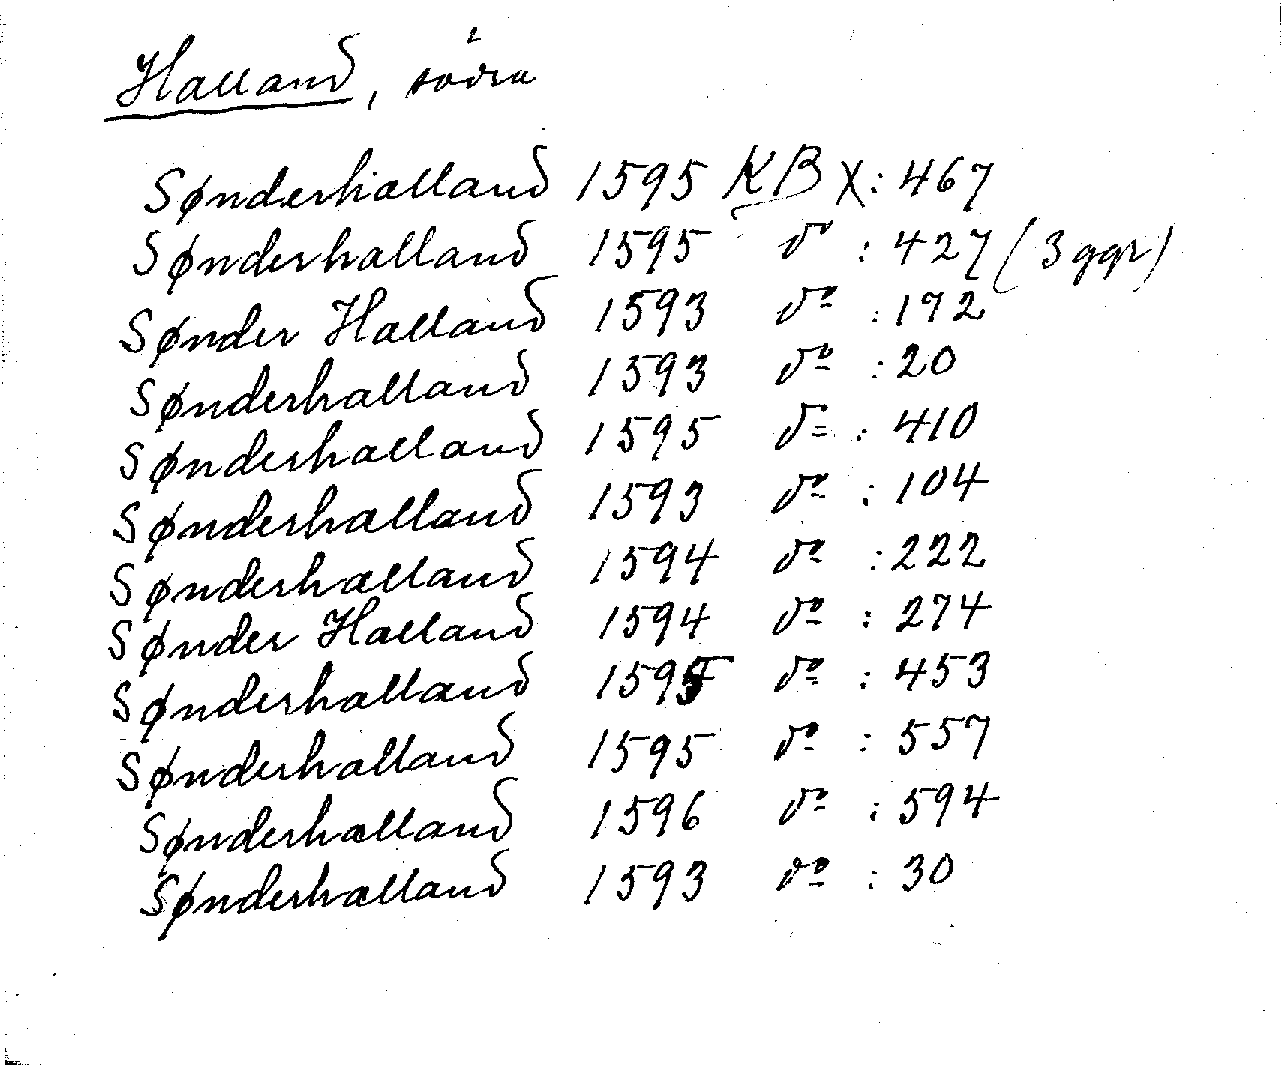 Halland, södra
Sønderhalland 1595 KB X: 467
Sønderhalland 1595 do : 427 (3 ggr)
Sønder Halland 1593 do : 172
Sønderhalland 1593 do : 20
Sønderhalland 1595 do : 410
Sønderhalland 1593 do : 104
Sønderhalland 1594 do : 222
Sønder Halland 1594 do : 274
Sønderhalland 1595 do : 453
Sønderhalland 1595 do : 557
Sønderhalland 1596 do : 594
Sønderhalland 1593 do : 30